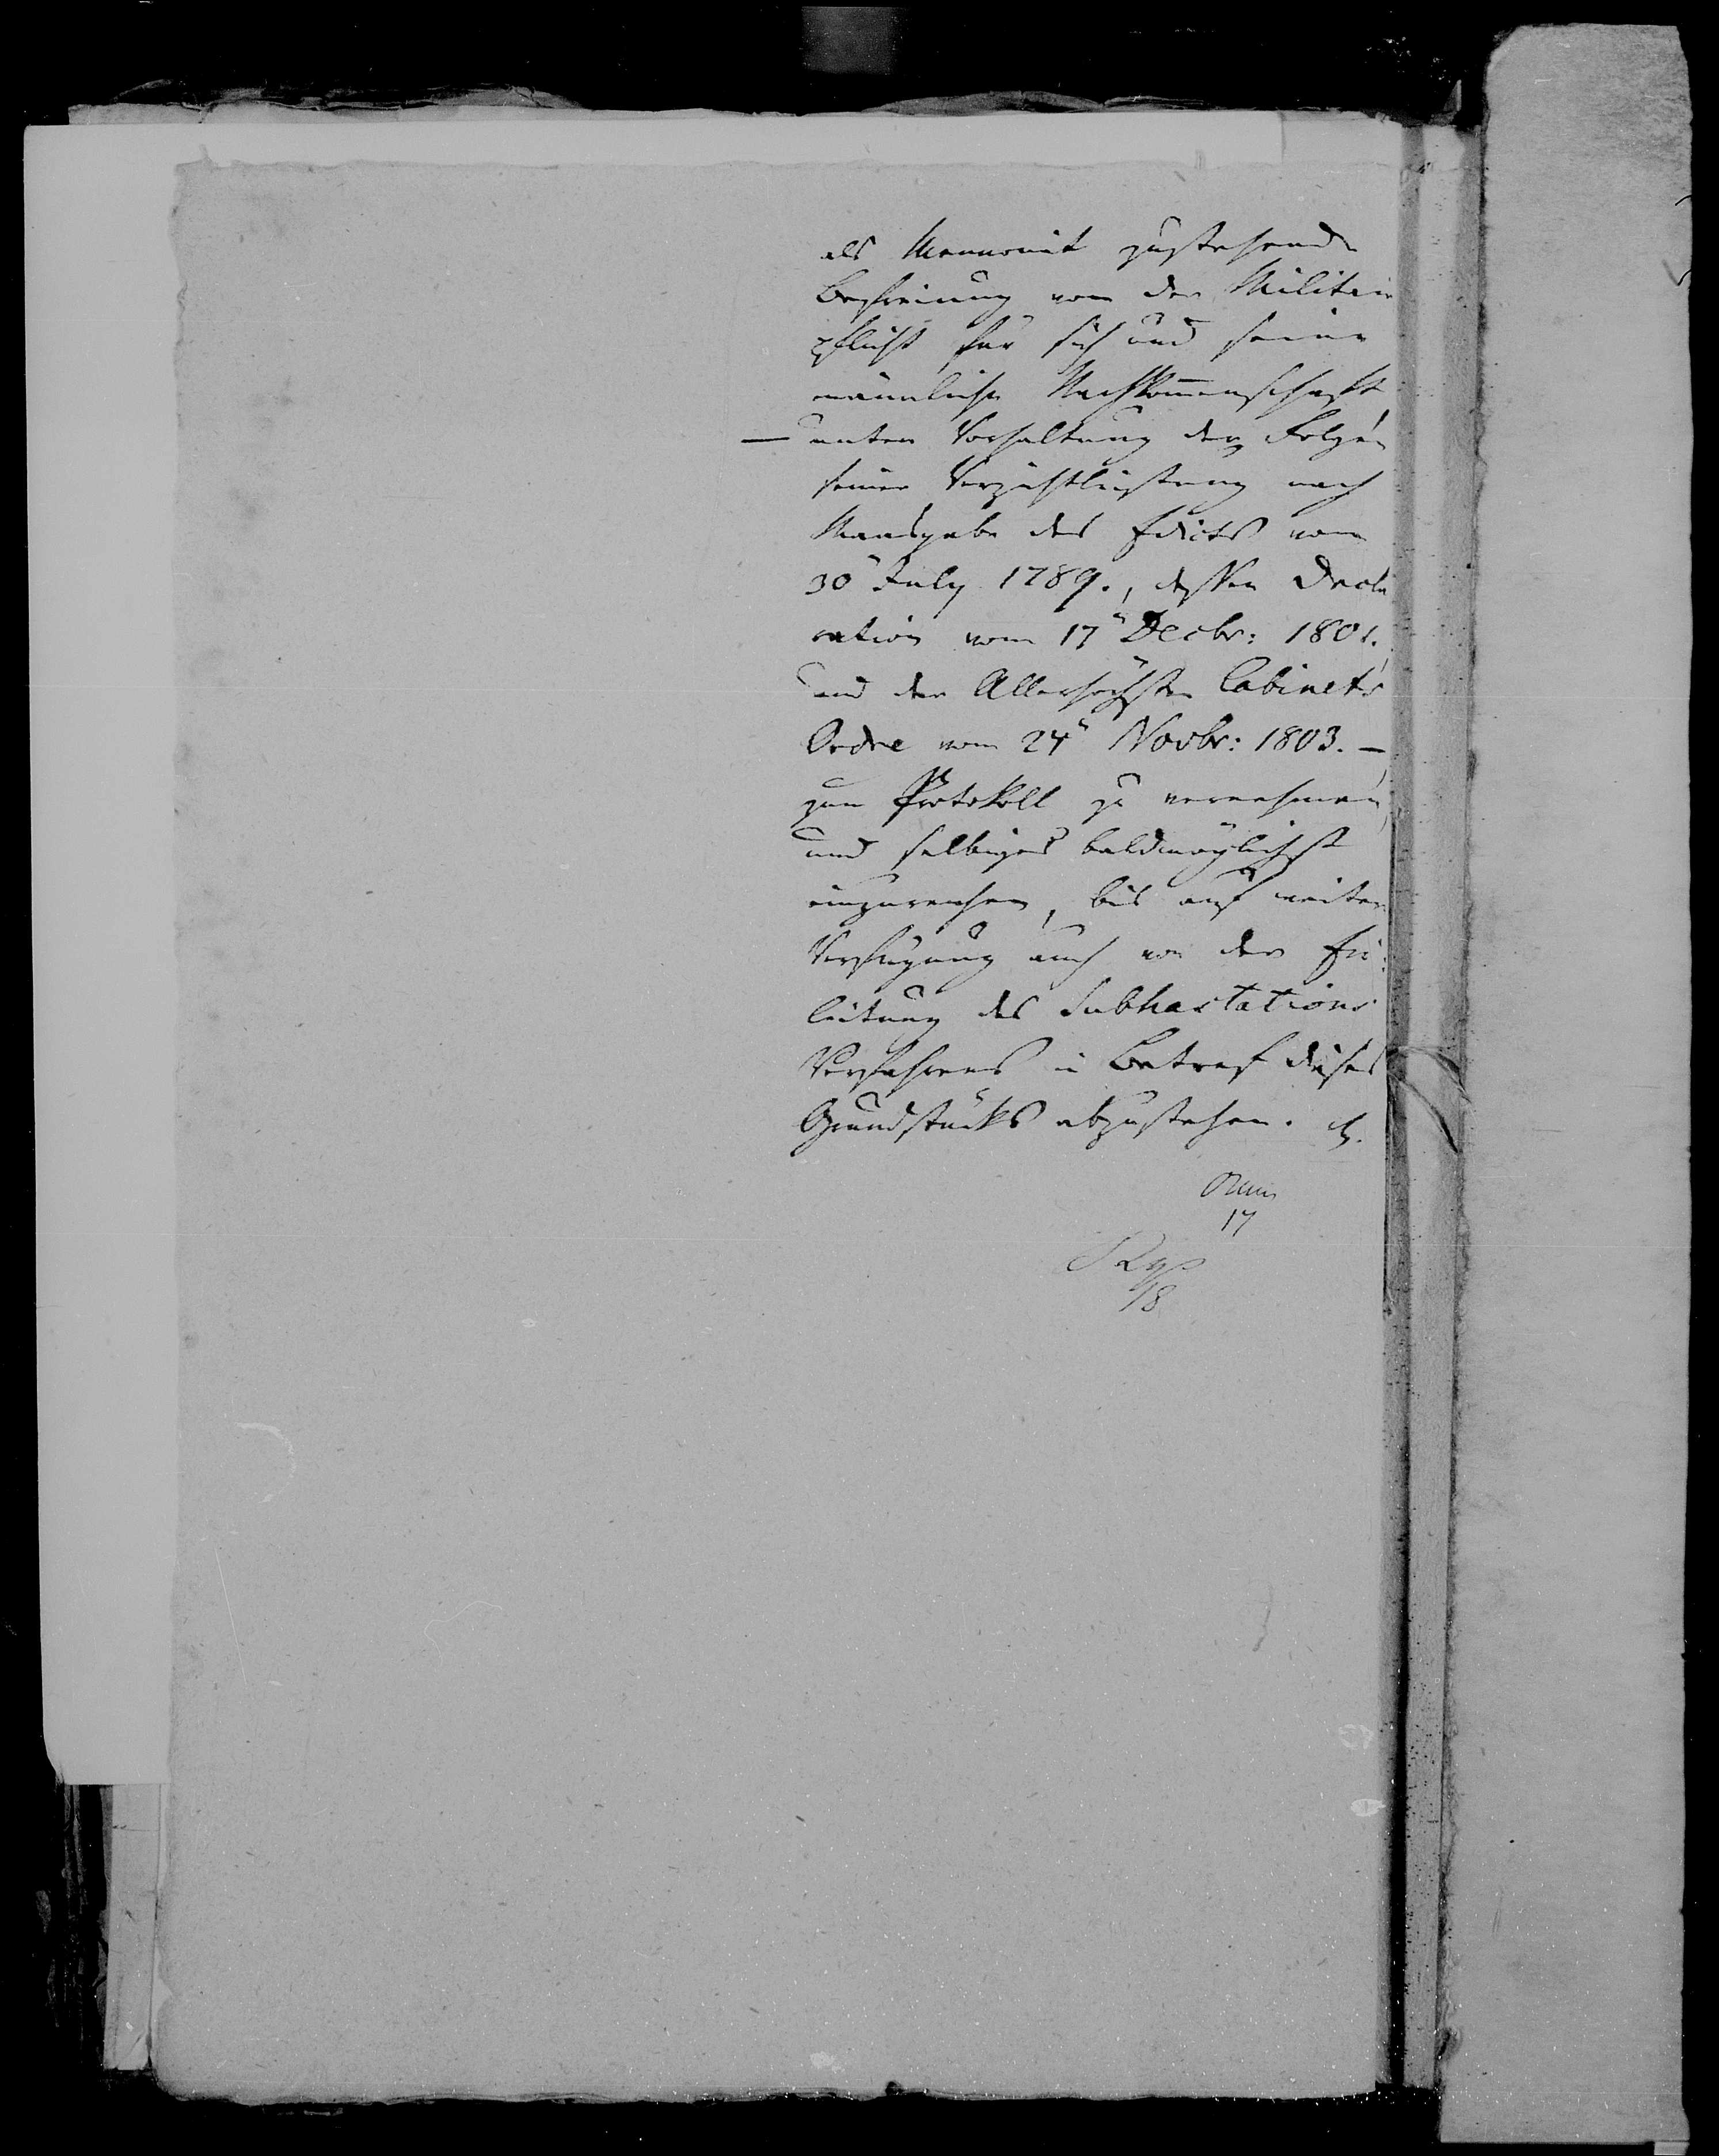 als Mennonit zustehende
Befreiung von der Militair
pflicht für sich und seine
männliche Nachkom̅enschaft
— unter Vorhaltung der Folgen
seiner Verzichtleistung nach
Maasgabe des Edicts vom
30" July 1789., dessen Decla
ration vom 17" Decbr: 1801.
und der Allerhöchsten Cabinets
Ordre vom 24" Novbr: 1803. —
zum Protokoll zu vernehmen,
und selbiges baldmöglichst
einzureichen, bis auf weitere
Verfügung auch von der Ein:
leitung des Subhastations
Verfahrens in Betref dieses
Grundstücks abzustehen.
17
18